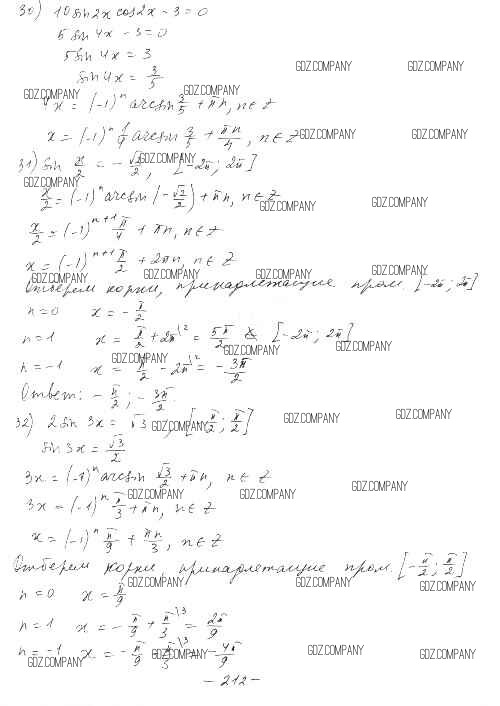 30) 10 sin 2x cos 2x - 3 = 0
5 sin 4x - 3 = 0
5 sin 4x = 3
sin 4x = 3/5
x = (-1)^n arcsin 3/5 + πn, n ∈ Z
x = (-1)^n 1/4 arcsin 3/5 + πn/4, n ∈ Z
31) sin x/2 = - √2/2, [-2π; 2π]
x/2 = (-1)^n arcsin (-√2/2) + πn, n ∈ Z
x/2 = (-1)^{n+1} π/4 + πn, n ∈ Z
x = (-1)^{n+1} π/2 + 2πn, n ∈ Z
Отберем корни, принадлежащие пром. [-2π; 2π]
n = 0 x = - π/2
n = 1 x = π/2 + 2π^{\2} = 5π/2 [-2π; 2π]
n = -1 x = π/2 - 2π^{\2} = - 3π/2
Ответ: - π/2; - 3π/2.
32) 2 sin 3x = √3, [-π/2; π/2]
sin 3x = √3/2
3x = (-1)^n arcsin √3/2 + πn, n ∈ Z
3x = (-1)^n π/3 + πn, n ∈ Z
x = (-1)^n π/9 + πn/3, n ∈ Z
Отберем корни, принадлежащие пром. [-π/2; π/2]
n = 0 x = π/9
n = 1 x = - π/9 + π/3^{\3} = 2π/9
n = -1 x = - π/9 - π/3^{\3} = - 4π/9
- 212 -
GDZ.COMPANY